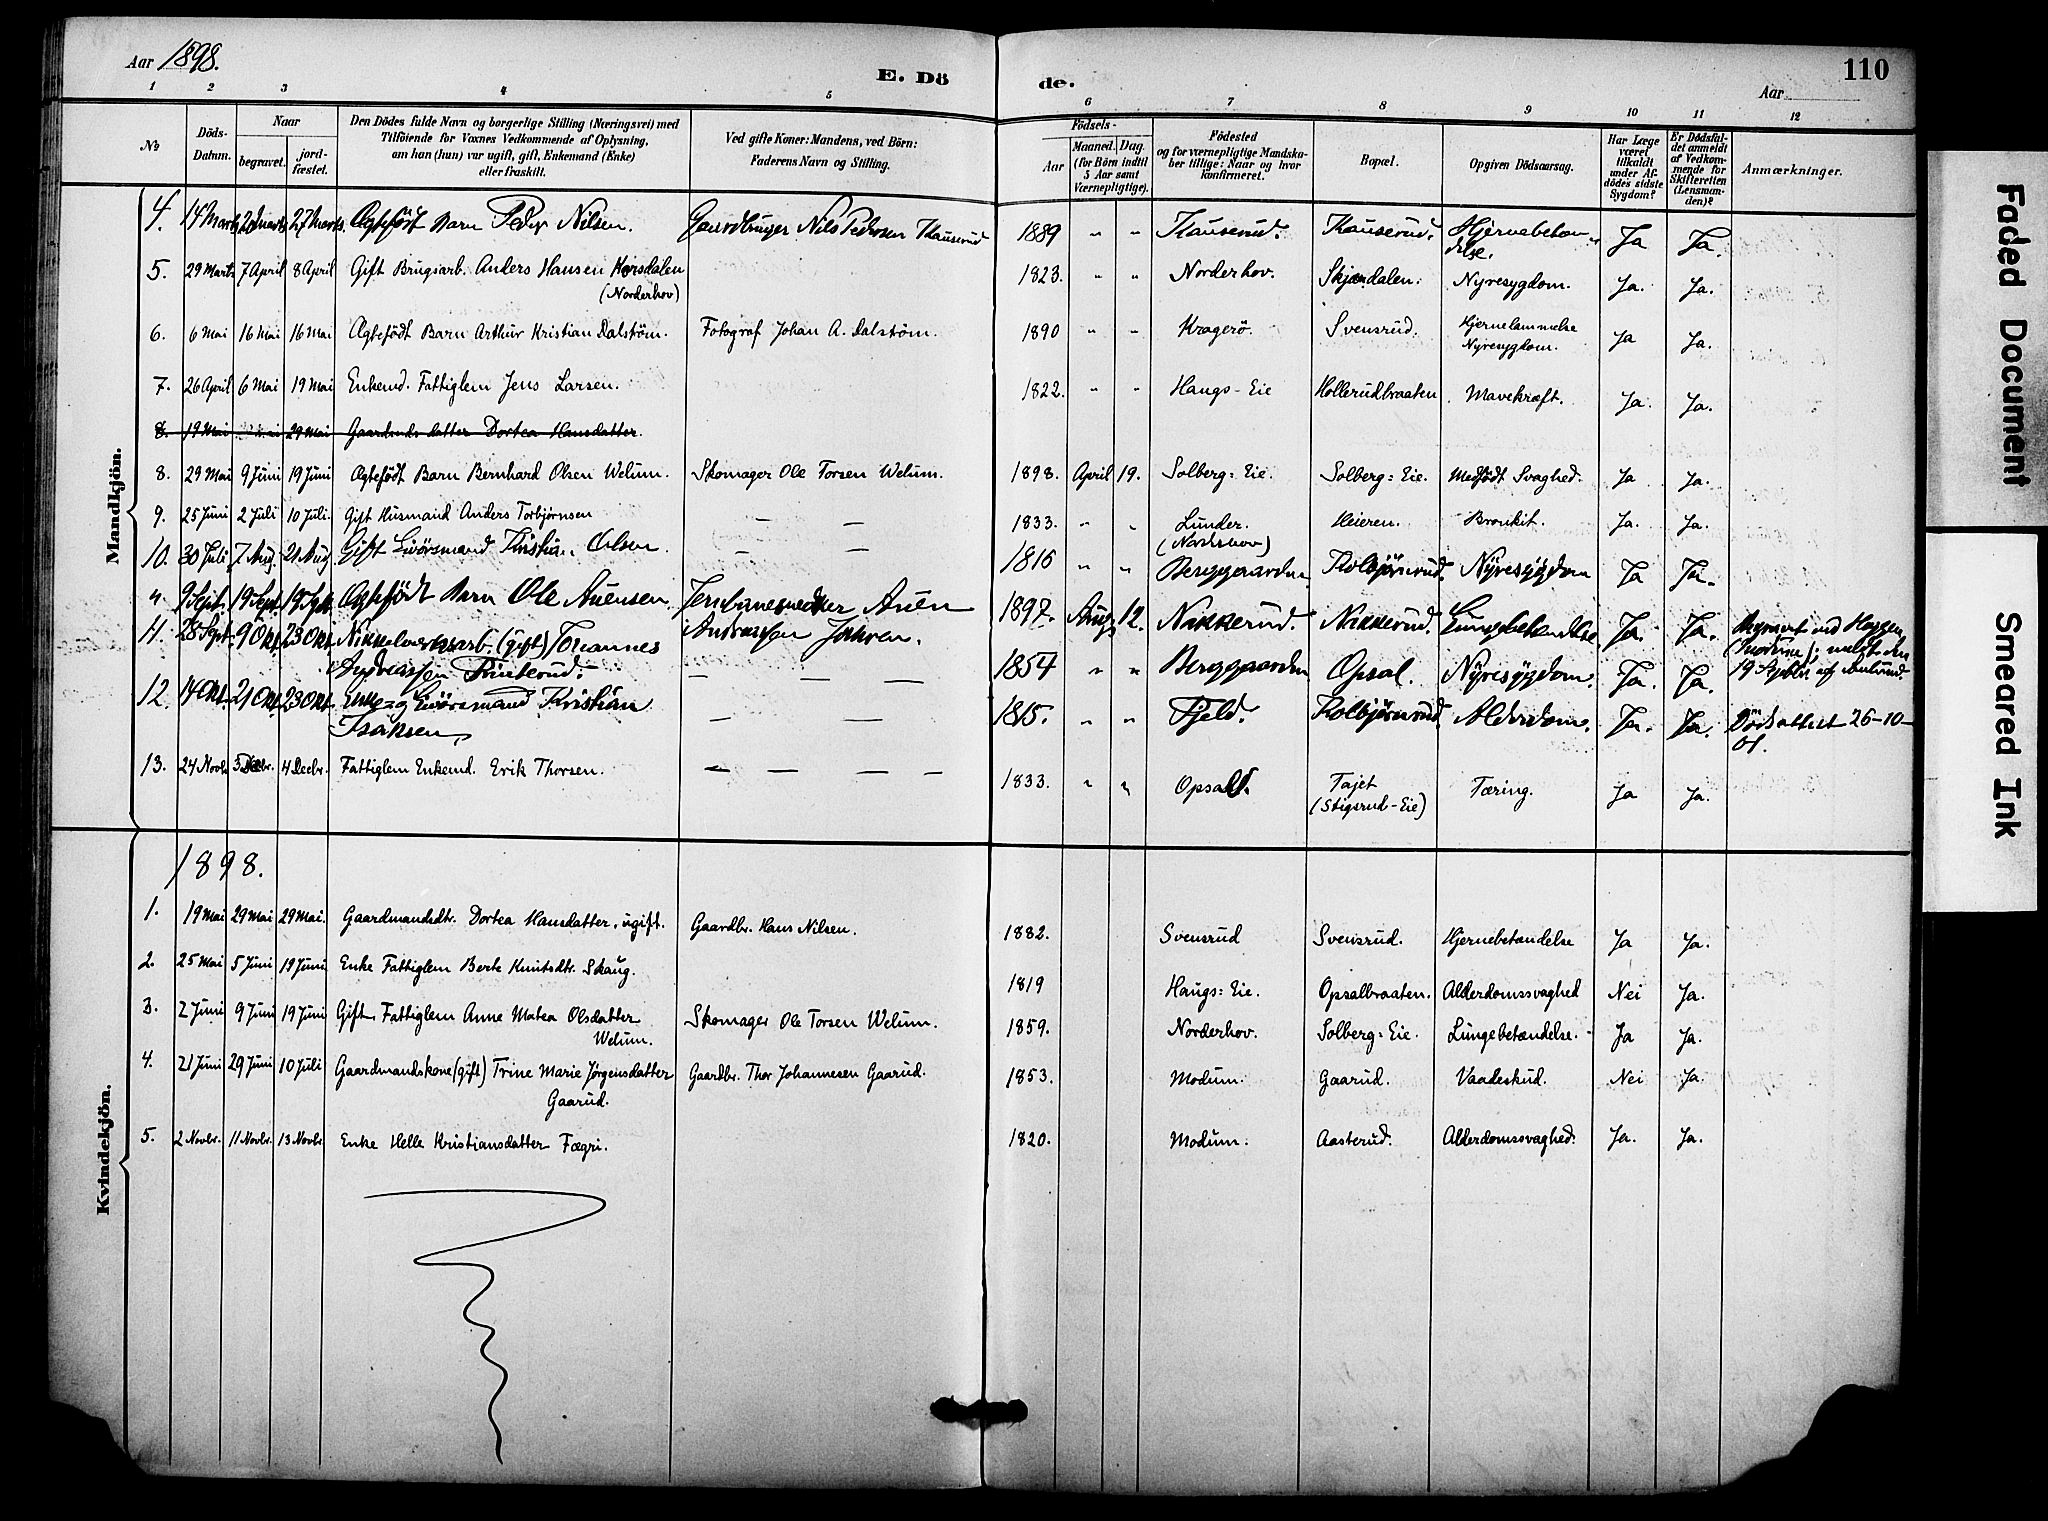 Aar 1898.
E. Dö
de.
Aar
110
1 2 3 4 5 6 7 8 9 10 11 12
No
Döds-Datum.
Naar
begravet.
jord-fæstet.
Den Dödes fulde Navn og borgerlige Stilling (Næringsvei) med
Tilföiende for Voxnes Vedkommende af Oplysning,
om han (hun) var ugift, gift, Enkemand (Enke)
eller fraskilt.
Ved gifte Koner: Mandens, ved Börn:
Faderens Navn og Stilling.
Födsels-
Aar
Maaned. Dag.
(for Börn indtil
5 Aar samt
Værnepligtige).
Födested
og for værnepligtige Mandska-
ber tillige: Naar og hvor
konfirmeret.
Bopæl.
Opgiven Dödsaarsag.
Har Læge
været
tilkaldt
under Af-
dödes sidste
Sygdom?
Er Dödsfal-
det anmeldt
af Vedkom-
mende for
Skifteretten
(Lensman-
den)?
Anmærkninger.
Mandkjön.
4. 14 Marts 20 Marts 27 Marts. Ægtefödt Barn Peder Nilsen. Gaardbruger Nils Pedersen Kauserud 1889 " " Kauserud. Kauserud. Hjernebetæn-
delse. Ja Ja.
5. 29 Marts 7 April 8 April Gift Brugsarb. Anders Hansen Korsdalen 1823. " " Norderhov. Skjærdalen: Nyresygdom. Ja. Ja.
(Norderhov)
6. 6 Mai 16 Mai 16 Mai Ægtefödt Barn Arthur Kristian Dalström. Fotograf Johan A. Dalström. 1890 " " Kragerö. Svensrud. Hjernelammelse
Nyresygdom. Ja Ja.
7. 26 April 6 Mai 19 Mai Enkemd. Fattiglem Jens Larsen. 1822. " " Haugs-Eie Hollerudbraaten Mavekræft. Ja. Ja.
8. 19 Mai 29 Mai datter Dortea Hansdatter.
8. 29 Mai 9 Juni 19 Juni Ægtefödt Barn Bernhard Olsen Welum. Skomager Ole Torsen Welum. 1898. April 19. Solberg=Eie. Solberg=Eie. Medfödt Svaghed. Ja Ja.
9. 25 Juni 2 Juli 10 Juli. Gift Husmand Anders Torbjørnsen — — 1833. " " Lunder. Heieren. Bronkit. Ja. Ja.
10. 30 Juli 7 Aug. 21 Aug Gift Livörsmand Kristian Olsen. — — 1816 " " Berggaarden Kolbjörnrud. Nyresygdom Ja Ja.
9 Sept. 19 Sept. 19 Sept. Ægtefödt Barn Ole Auensen. Auen 1897. Aug. 12. Nikkerud. Nikkerud. Lungebetændelse Ja. Ja.
Andreassen
11. 28 Sept. 9 Okt. 23 Okt. Nikkelverksarb. (gift) Johannes
Andreassen — — — 1854 " " Berggaarden Opsal. Nyresygdom. Ja. Ja.
12. 14 Okt. 21 Okt. 23 Okt. Livörsmand Kristian
Isaksen. — — 1815. " " Fjeld. Kolbjørnrud. Alderdom. Ja. Ja. Dödsattest 26-10-
01.
13. 24 Novbr. 5 Decbr. 4 Decbr. Fattiglem Enkemd. Erik Thorsen. — — — — 1833. " " Opsal. Tajet
(Stigsrud-Eie) Tæring. Ja Ja.
Kvindekjön.
1898.
1. 19 Mai 29 Mai 29 Mai. Gaardmandsdtr. Dortea Hansdatter, ugift. Gaardbr. Hans Nilsen. 1882. Svensrud Svensrud. Hjernebetændelse Ja Ja.
2. 25 Mai 5 Juni 19 Juni Enke Fattiglem Berte Knutsdtr. Skaug. 1819 Haugs=Eie. Opsalbraaten. Alderdomssvaghed Nei Ja.
3. 2 Juni 9 Juni 19 Juni Gift. Fattiglem Anne Matea Olsdatter
Welum. Skomager Ole Torsen Welum. 1859. Norderhov. Solberg=Eie. Lungebetændelse. Ja Ja.
4. 21 Juni 29 Juni 10 Juli Gaardmandskone (gift) Trine Marie Jörgensdatter
Gaarud. Gaardbr. Thor Johannesen Gaarud. 1853. Modum. Gaarud. Vaadeskud. Nei Ja.
5. 2 Novbr. 11 Novbr. 13 Novbr Enke Helle Kristiansdatter Fægri. 1820. Modum. Aasterud. Alderdomssvaghed. Ja. Ja.
Faded Document
Smeared Ink